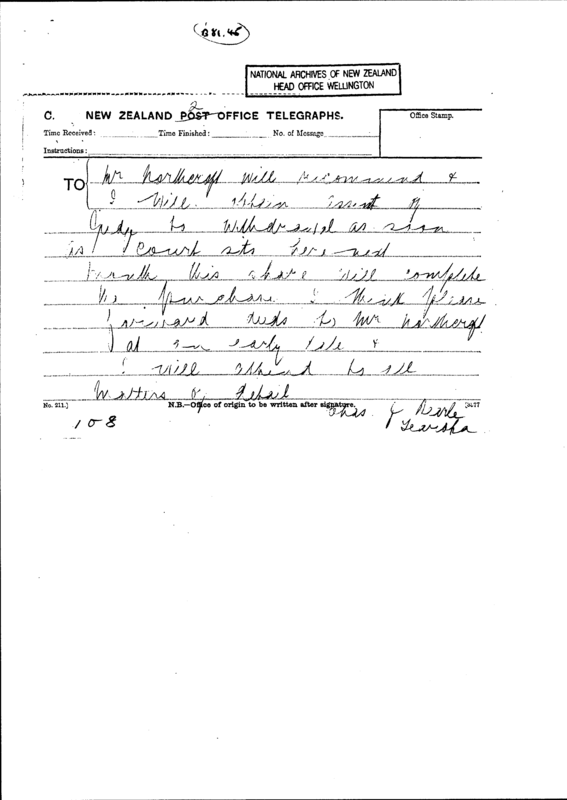 G 81.45
NATIONAL ARCHIVES OF NEW ZEALAND
HEAD OFFICE WELLINGTON
2
C. NEW ZEALAND POST OFFICE TELEGRAPHS. Office Stamp.
Time Received: Time Finished: No. of Message
Instructions:
TO Mr Northcroft will recommend &
I will obtain assent of
to withdrawal as soon
as court sits here next
this share will complete
the purchase I think please
forward deeds to Mr Northcroft
at an early date &
I will attend to all
matters of detail
No. 211.] N.B.—Office of origin to be written after signature. [3477
Chas J Dearle
108